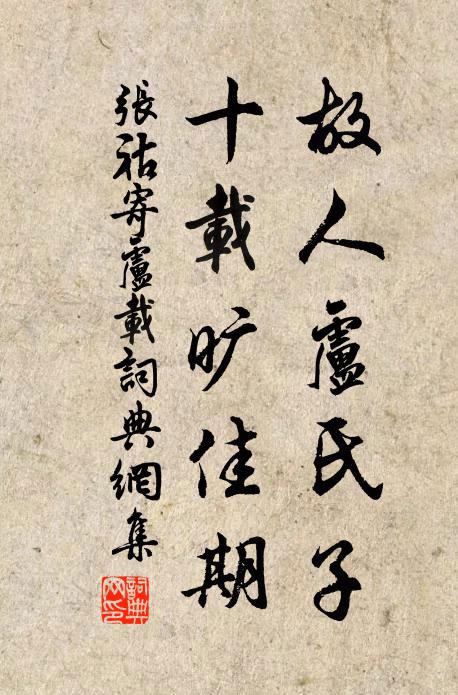 故人盧氏子
十載旷佳期
張祜寄盧載詞典網集
詞典网印